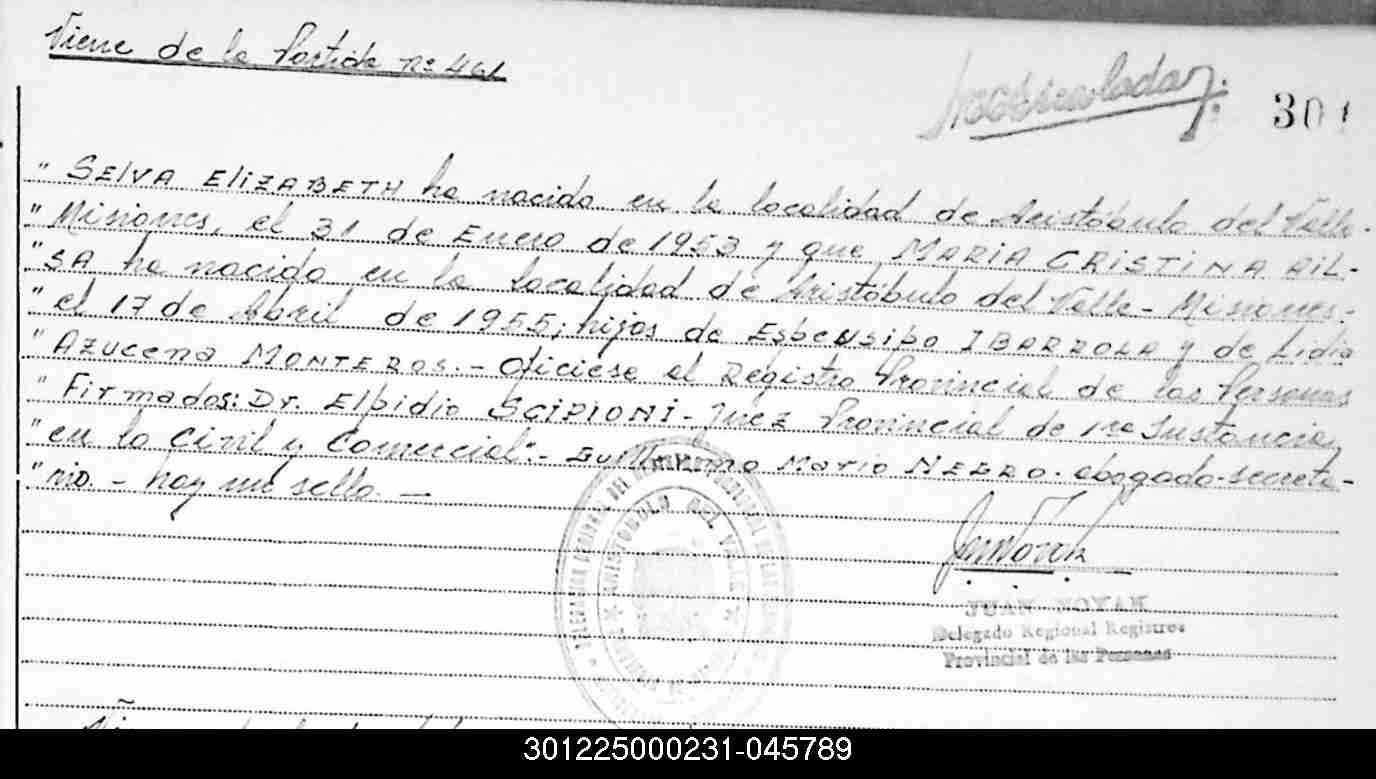 Viene de la Partida Nº 461
301
" SELVA ELIZABETH ha nacido en la localidad de Aristóbulo del Valle-
" Misiones, el 31 de Enero de 1953 y que MARIA CRISTINA AIL-
" SA ha nacido en la localidad de Aristóbulo del Valle - Misiones-
" el 17 de Abril de 1955; hijos de Esbeusipo IBARROLA y de Lidia
" AZUCENA MONTEROS.- Ofíciese al Registro Provincial de las Personas
" Firmados: Dr. Elpidio SCIPIONI - Juez Provincial de 1ra Instancia,
" en lo Civil y Comercial".- Guillermo Mario NEGRO - abogado-secreta-
" rio. - hay un sello. —
ARISTOBULO DEL VALLE
JUAN NOVAK
Delegado Regional Registros
Provincial de las Personas
301225000231-045789